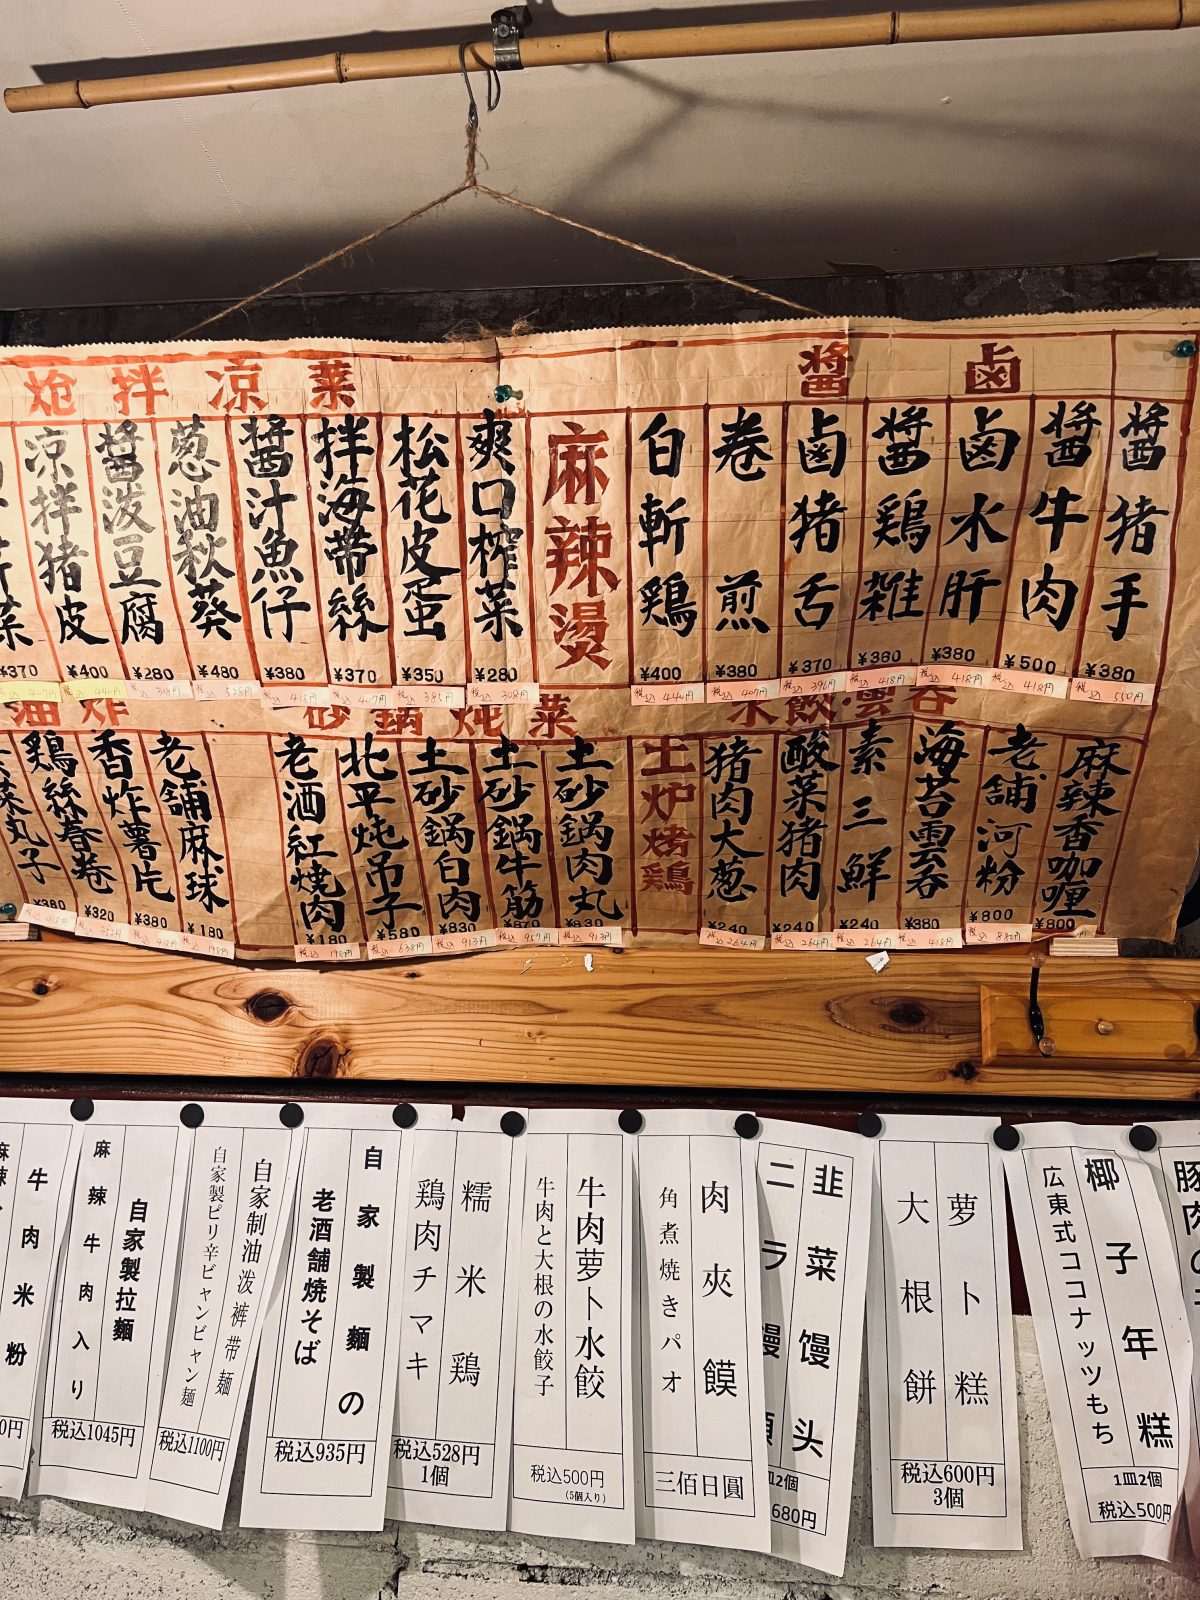 醤 鹵
醤猪手
¥380
税込 550円
醤牛肉
¥500
税込 418円
鹵水肝
¥380
税込 418円
醤鶏雑
¥360
税込 418円
鹵猪舌
¥370
税込 396円
卷煎
¥380
税込 407円
白斬鶏
¥400
税込 440円
麻辣燙
炝拌凉菜
爽口榨菜
¥280
税込 308円
松花皮蛋
¥350
税込 385円
拌海帶絲
¥370
税込 407円
醤汁魚仔
¥380
税込 418円
葱油秋葵
¥480
税込 528円
醤泼豆腐
¥280
税込 308円
凉拌猪皮
¥400
税込 440円
菜
¥370
税込 407円
水餃·雲吞
麻辣香咖喱
¥800
老舗河粉
¥800
税込 880円
海苔雲吞
¥380
税込 418円
素三鮮
¥240
税込 264円
酸菜猪肉
¥240
税込 264円
猪肉大葱
¥240
税込 264円
土炉烤鶏
砂鍋炖菜
土砂鍋肉丸
¥830
税込 913円
土砂鍋牛筋
¥870
税込 957円
土砂鍋白肉
¥830
税込 913円
北平炖吊子
¥580
税込 638円
老酒紅燒肉
¥180
税込 198円
油炸
老舗麻球
¥180
税込 198円
香炸薯片
¥380
税込 418円
鶏絲春卷
¥320
税込 352円
菜丸子
¥380
税込 418円
豚肉の
椰子年糕
広東式ココナッツもち
1皿2個
税込500円
萝卜糕
大根餅
税込600円
3個
韭菜馒头
ニラ饅頭
皿2個
680円
肉夾饃
角煮焼きパオ
三佰日圓
牛肉萝卜水餃
牛肉と大根の水餃子
税込500円
(5個入り)
糯米鶏
鶏肉チマキ
税込528円
1個
自家製麺の
老酒舗焼そば
税込935円
自家制油泼裤带麺
自家製ピリ辛ビャンビャン麺
税込1100円
自家製拉麺
麻辣牛肉入り
税込1045円
牛肉米粉
麻辣
0円